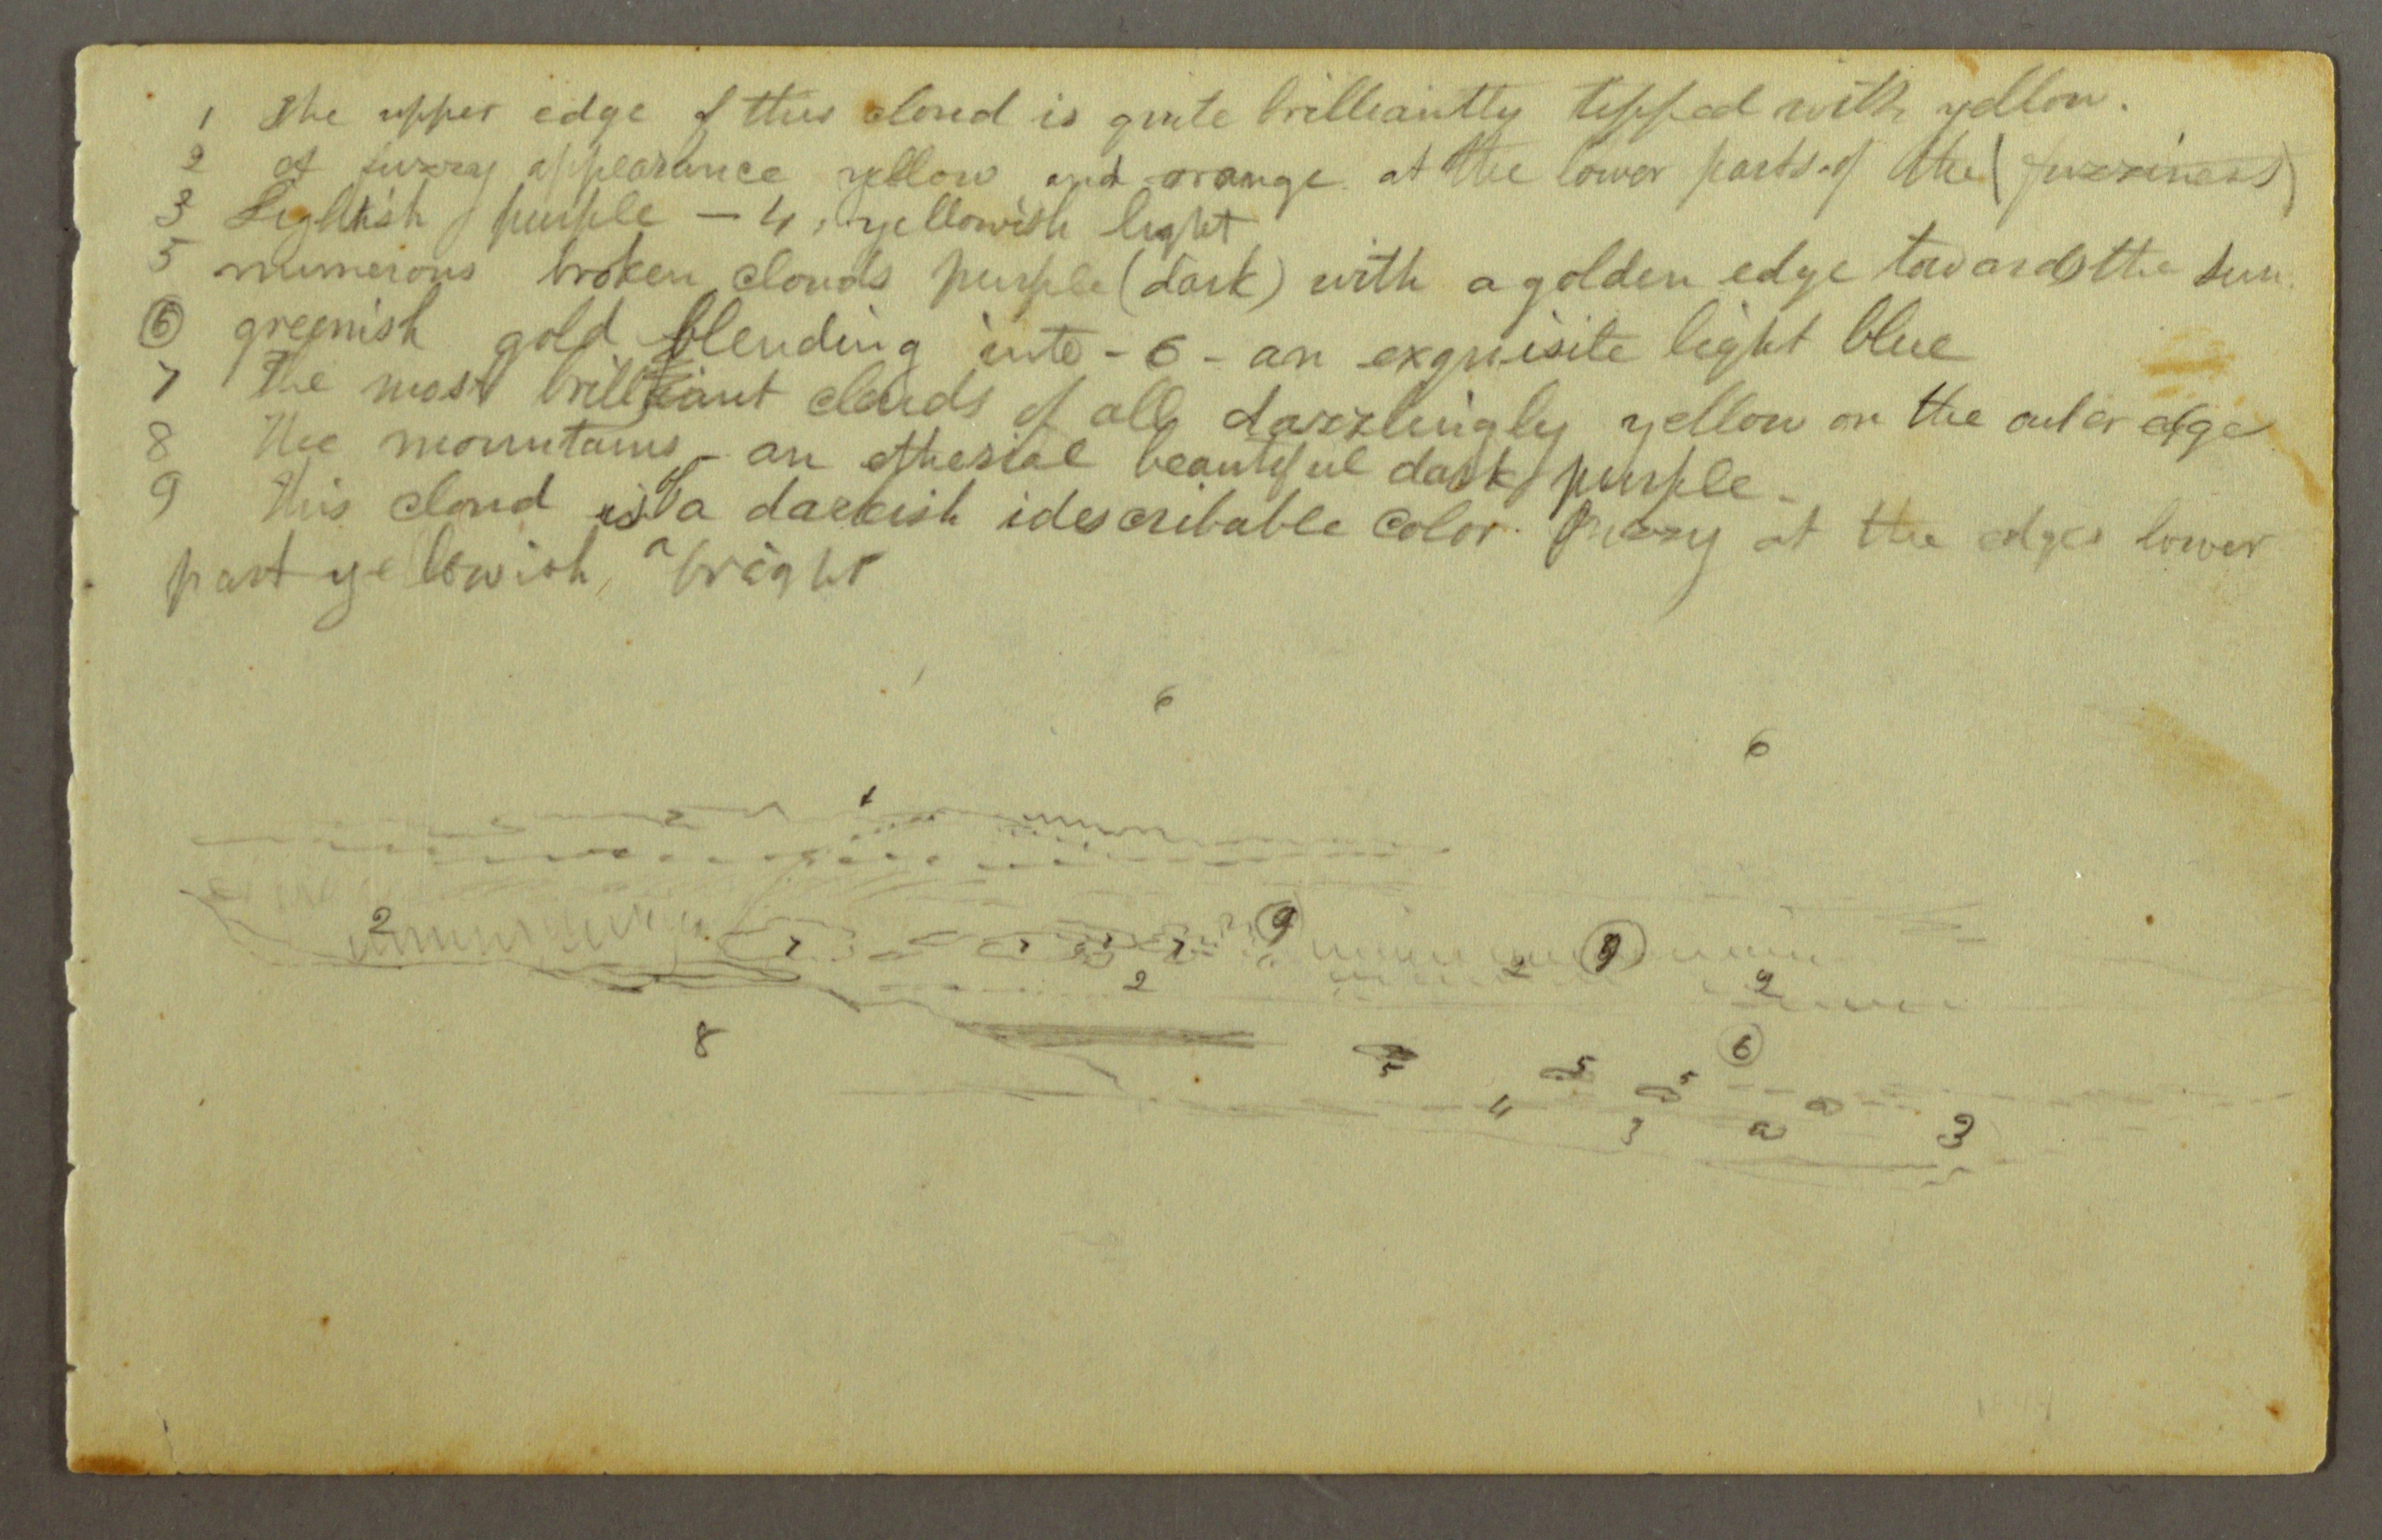 1 The upper edge of this cloud is quite brilliantly tipped with yellow.
2 of fuzzy appearance yellow and orange at the lower parts of the (fuzziness)
3 Lightish purple — 4, yellowish light
5 numerous broken clouds purple (dark) with a golden edge towards the sun.
6 greenish gold blending into - 6 - an exquisite light blue
7 The most brilliant clouds of all dazzlingly yellow on the outer edge
8 The mountains - an etherial beautiful dark purple -
9 This cloud is of a darkish idescribable color. Fuzzy at the edges lower
part yellowish, bright
6
6
1
2 7 7 7 9 2 9
2 2
8 6
5 5 5
4 3 3